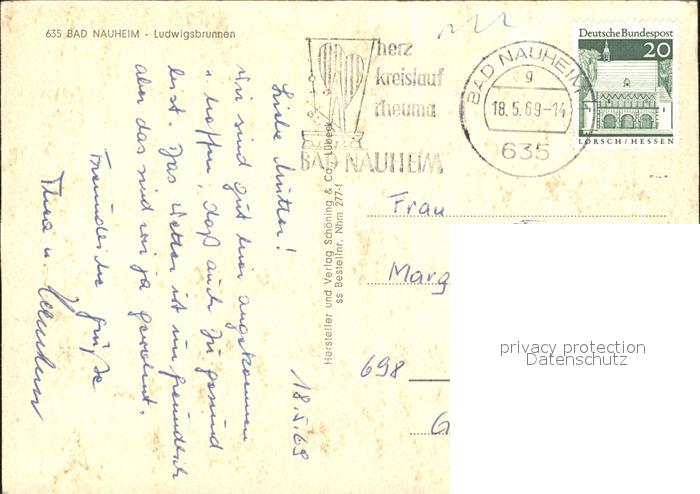 635 BAD NAUHEIM - Ludwigsbrunnen
herz
kreislauf
rheuma
BAD NAUHEIM
BAD NAUHEIM
g
18.5.69-14
635
Deutsche Bundespost
20
LORSCH/HESSEN
18.5.69
Liebe Mutter!
Wir sind gut hier angekommen
u. hoffen, daß auch Du gesund
bist. Das Wetter ist unfreundlich
aber das sind wir ja gewohnt.
Freundliche Grüße
Thea u.
Hersteller und Verlag Schöning & Co., Lübeck
ss Bestellnr. Nhm 277-1
Frau
Marg
698
G
privacy protection
Datenschutz